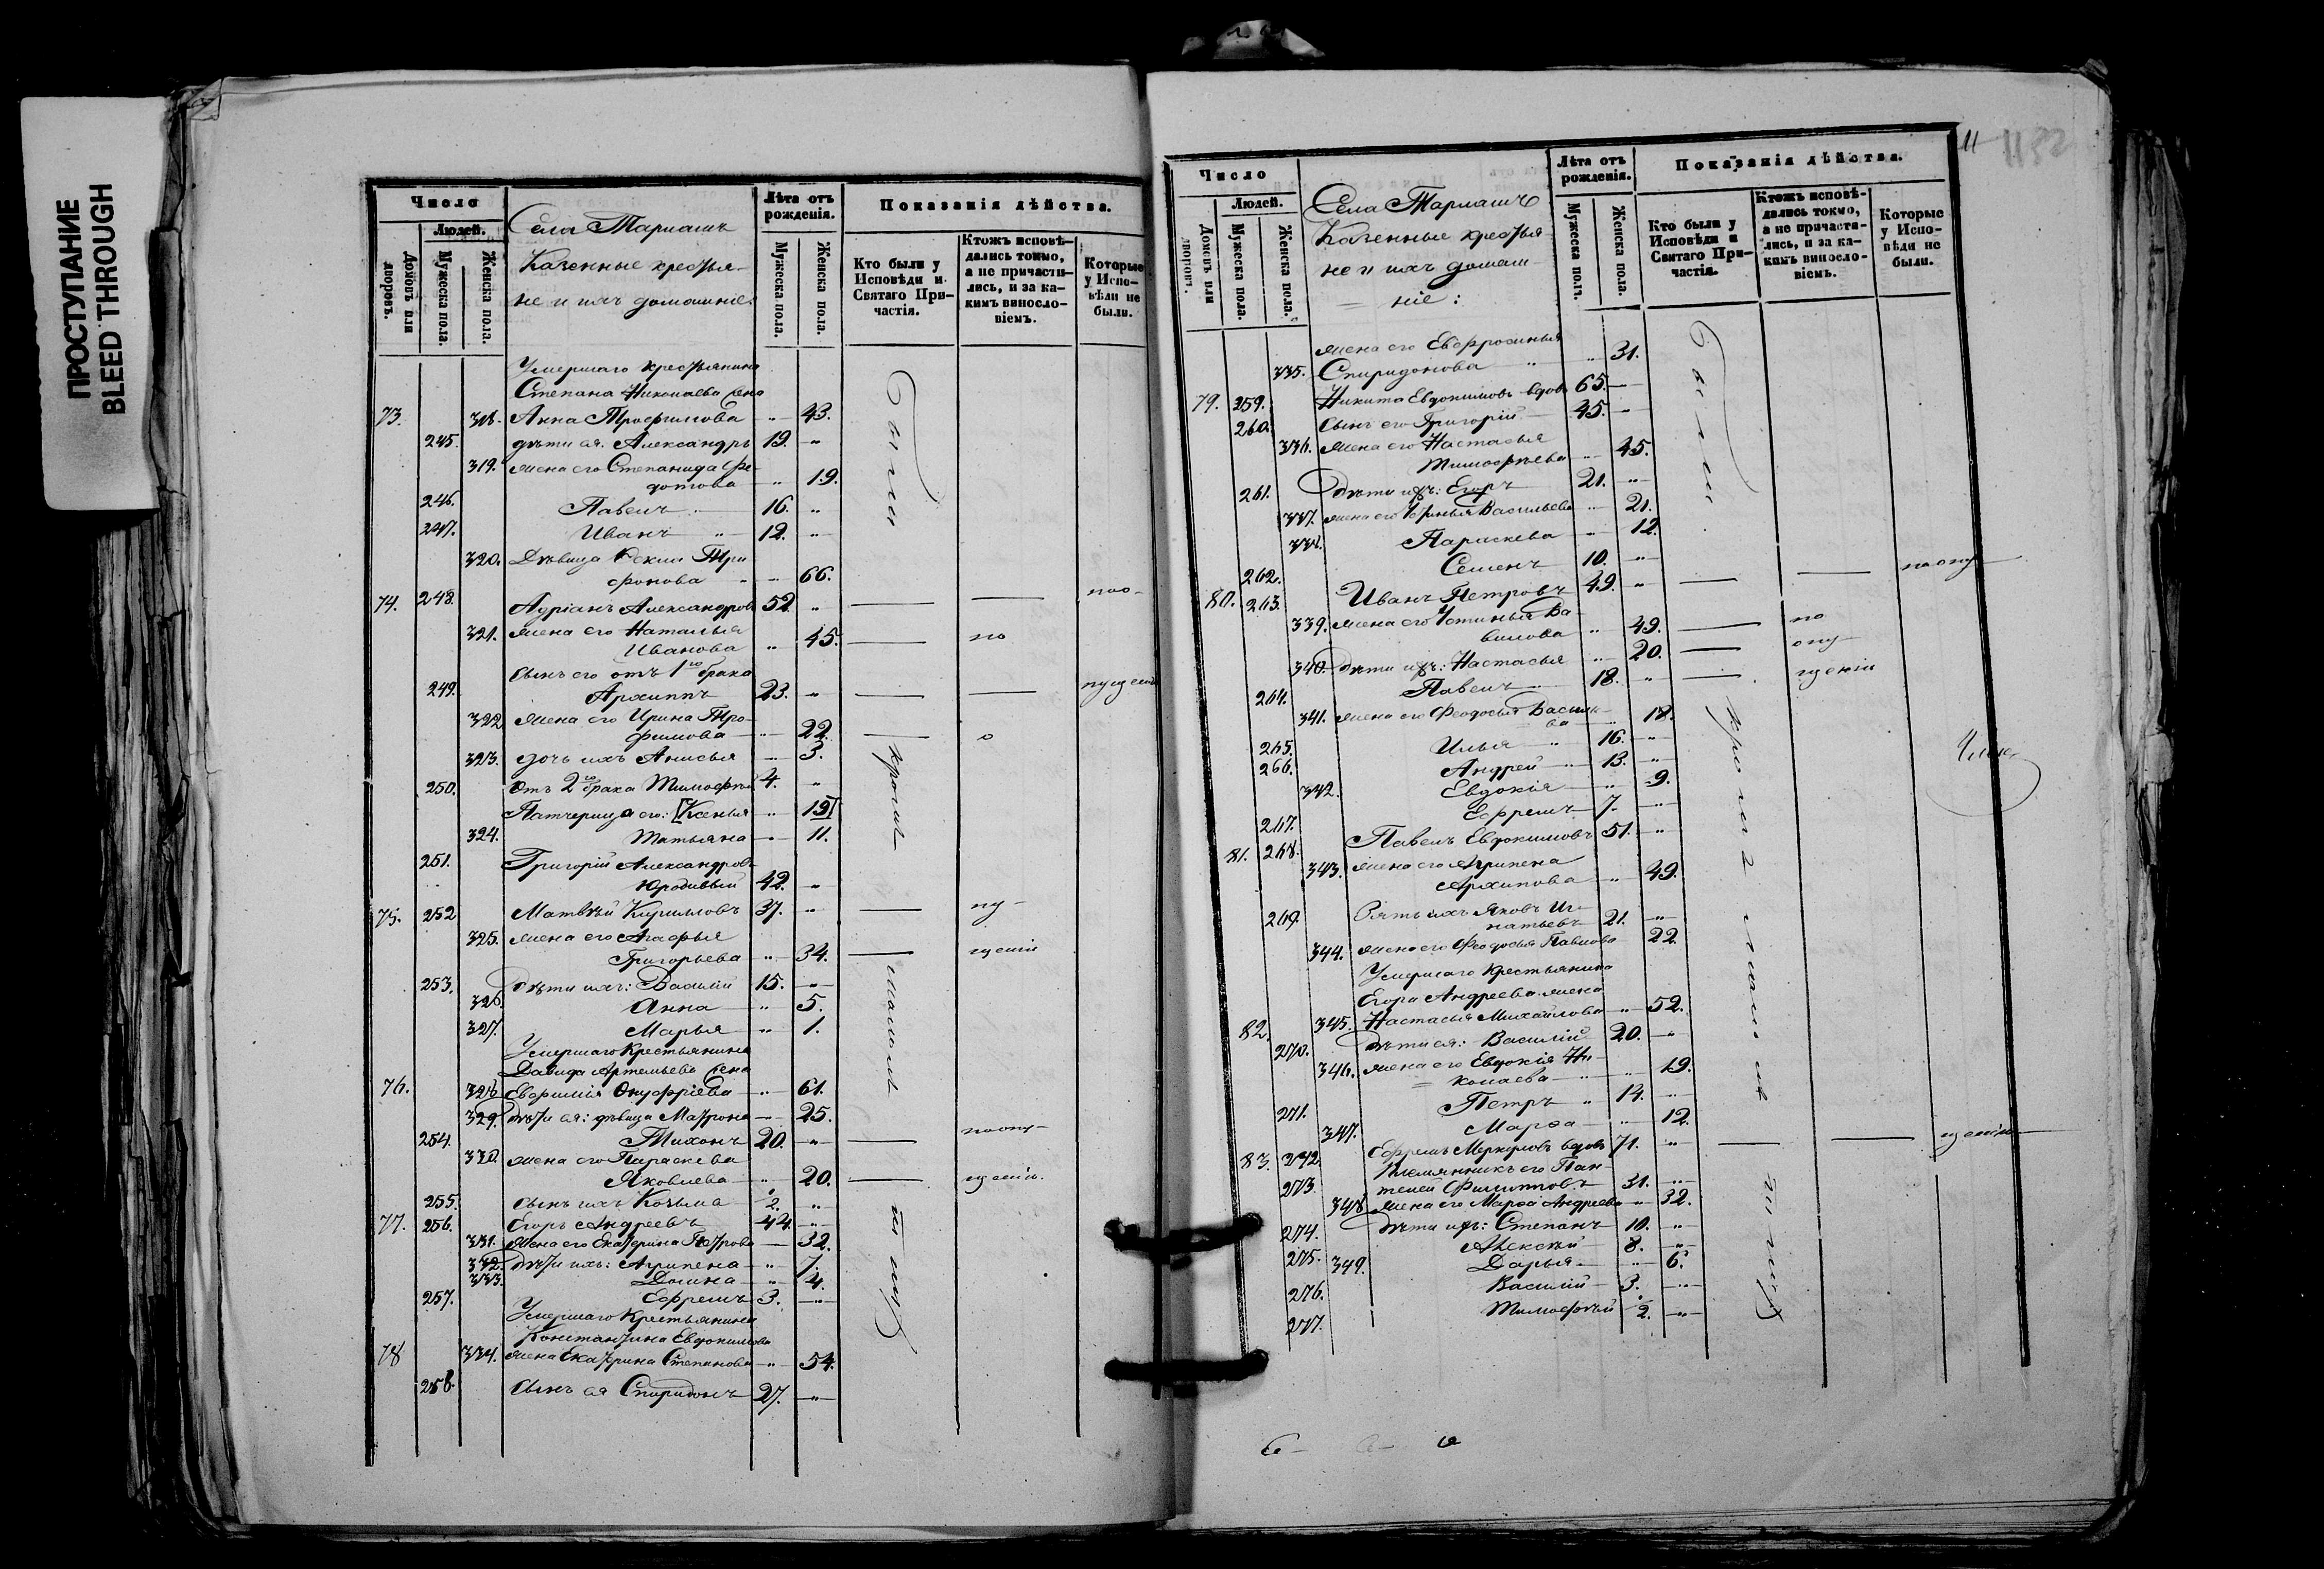 ПРОСТУПАНИЕ
BLEED THROUGH
Число
Людей.
Домовъ или дворовъ.
Мужеска пола.
Женска пола.
Села Тармашъ
Казенные крестья-
не и ихъ домашніе:
Лѣта отъ рожденія.
Мужеска пола.
Женска пола.
Показанія дѣйства.
Кто были у Исповѣди и Святаго При-частія.
Ктожъ исповѣ-дались токмо, а не причасти-лись, и за ка-кимъ винosло-віемъ.
Которые у Испо-вѣди не были.
Умершаго крестьянина
Степана Николаева жена
73. 318. Анна Трофимова " 43.
245. дѣти ея: Александръ 19. "
319. жена его Степанида Фе-
дотова " 19.
246. Павелъ 16. "
247. Иванъ 12. "
320. Дѣвица Три-
фонова " 66.
74. 248. Адріанъ Александровъ 52. "
321. жена его Наталья
Иванова " 45. по
сынъ его отъ 1го брака
249. Архиппъ 23. "
322 жена его Ирина Тро-
фимова " 22.
323. дочь ихъ Анисья " 3.
250. отъ 2го брака Тимофей 4. "
Патчерица его: [Ксенья " 19]
324. Татьяна " 11.
251. Григорій Александровъ
Юродивый 42. "
75. 252 Матвѣй Кирилловъ 37. " пу-
325. жена его Агафья
Григорьева " 34. щенію
253. Дѣти ихъ: Василій 15. "
326. Анна " 5.
327. Марья " 1.
Умершаго крестьянина
Давида Артемьева жена
76. 328 Евфимія Онуфріева " 61.
329. дѣти ея: дѣвица Матрона 25.
254. Тихонъ 20. " по опу-
330. жена его Параскева
Яковлева " 20. щенію.
255. сынъ ихъ Козьма 2. "
77. 256. Егоръ Андреевъ 44. "
331. жена его Екатерина Петрова 32.
332. дѣти ихъ: Агрипена " 7.
333. Домна " 4.
257. Ефремъ 3. "
Умершаго крестьянина
Константина Евдокимова
78 334. жена Екатерина Степанова " 54.
258. сынъ ея Спиридонъ 27. "
Были
кромѣ
11
1132
Число
Людей.
Домовъ или дворовъ.
Мужеска пола.
Женска пола.
Села Тармашъ
Казенные крестья-
не и ихъ домаш-
ніе:
Лѣта отъ рожденія.
Мужеска полъ.
Женска пола.
Показанія дѣйства.
Кто были у Исповѣди и Святаго При-частія.
Ктожъ исповѣ-дались токмо, а не причасти-лись, и за ка-кимъ виносло-віемъ.
Которые у Испо-вѣди не были.
жена его Евфросинья
335. Спиридонова " 31.
79. 259. Никита Евдокимовъ вдовъ 65.
260. Сынъ его Григорій 45. "
336. жена его Настасья
Тимофѣева " 45.
261. Дѣти ихъ: Егоръ 21. "
337. жена его Иринья Васильева " 21.
338. Параскева " 12.
262. Семенъ 10. "
80. 263. Иванъ Петровъ 49. " по опу
339. жена его Устинья Ва-
вилова " 49. по
340. Дѣти ихъ: Настасья " 20. опу-
264. Павелъ 18. " щенію
341. жена его Феодосья Василье-
ва 18.
265. Илья 16. "
266. Андрей 13. "
342. Евдокія " 9.
267. Ефремъ 7. "
81. 268. Павелъ Евдокимовъ 51. "
343. жена его Агрипена
Архипова " 49.
269 Зять ихъ Яковъ Иг-
натьевъ 21. "
344. жена его Феодосья Павлова 22.
Умершаго крестьянина
Егора Андреева жена
82. 345. Настасья Михайлова " 52.
270. Дѣти ея: Василій 20. "
346. жена его Евдокія Ни-
колаева " 19.
271. Петръ 14. "
347. Марѳа " 12.
83. 272. Ефремъ Меркуловъ вдовъ 71. " щенію
Племянникъ его Пан-
273. телей Филипповъ 31. "
348. жена его Марѳа Андреева " 32.
274. Дѣти ихъ: Степанъ 10. "
275. Алексѣй 8. "
349. Дарья " 6.
276. Василій 3. "
277. Тимофей 2. "
Были
кромѣ